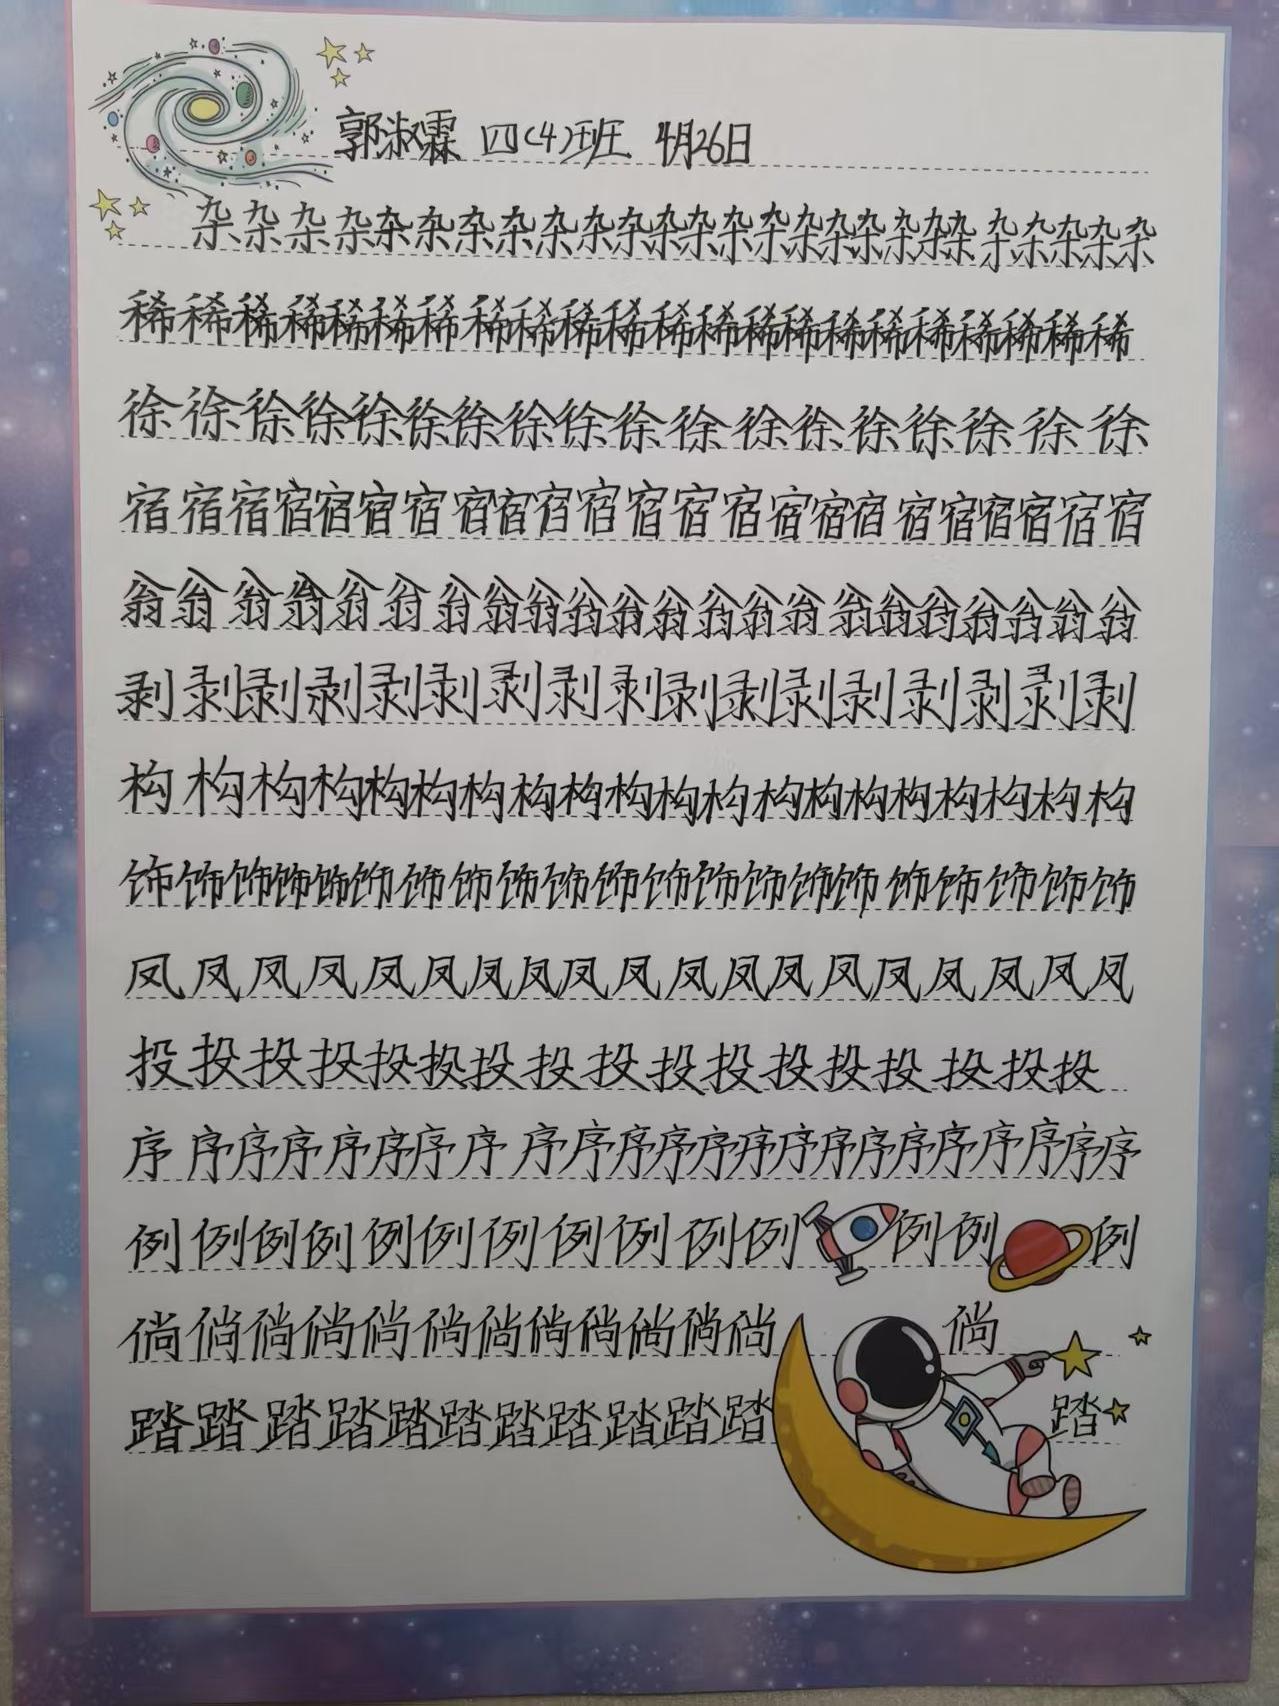 郭淑霖 四(4)班 4月26日
杂杂杂杂杂杂杂杂杂杂杂杂杂杂杂杂杂杂杂杂杂杂杂杂杂
稀稀稀稀稀稀稀稀稀稀稀稀稀稀稀稀稀稀稀稀稀稀
徐徐徐徐徐徐徐徐徐徐徐徐徐徐徐徐徐徐
宿宿宿宿宿宿宿宿宿宿宿宿宿宿宿宿宿宿宿宿宿宿宿
翁翁翁翁翁翁翁翁翁翁翁翁翁翁翁翁翁翁翁翁翁翁
剥剥剥剥剥剥剥剥剥剥剥剥剥剥剥剥剥
构构构构构构构构构构构构构构构构构构构构
饰饰饰饰饰饰饰饰饰饰饰饰饰饰饰饰饰饰饰饰饰
凤凤凤凤凤凤凤凤凤凤凤凤凤凤凤凤凤凤凤
投投投投投投投投投投投投投投投投投
序序序序序序序序序序序序序序序序序序序序序序序
例例例例例例例例例例例例例例
倘倘倘倘倘倘倘倘倘倘倘倘倘
踏踏踏踏踏踏踏踏踏踏踏踏